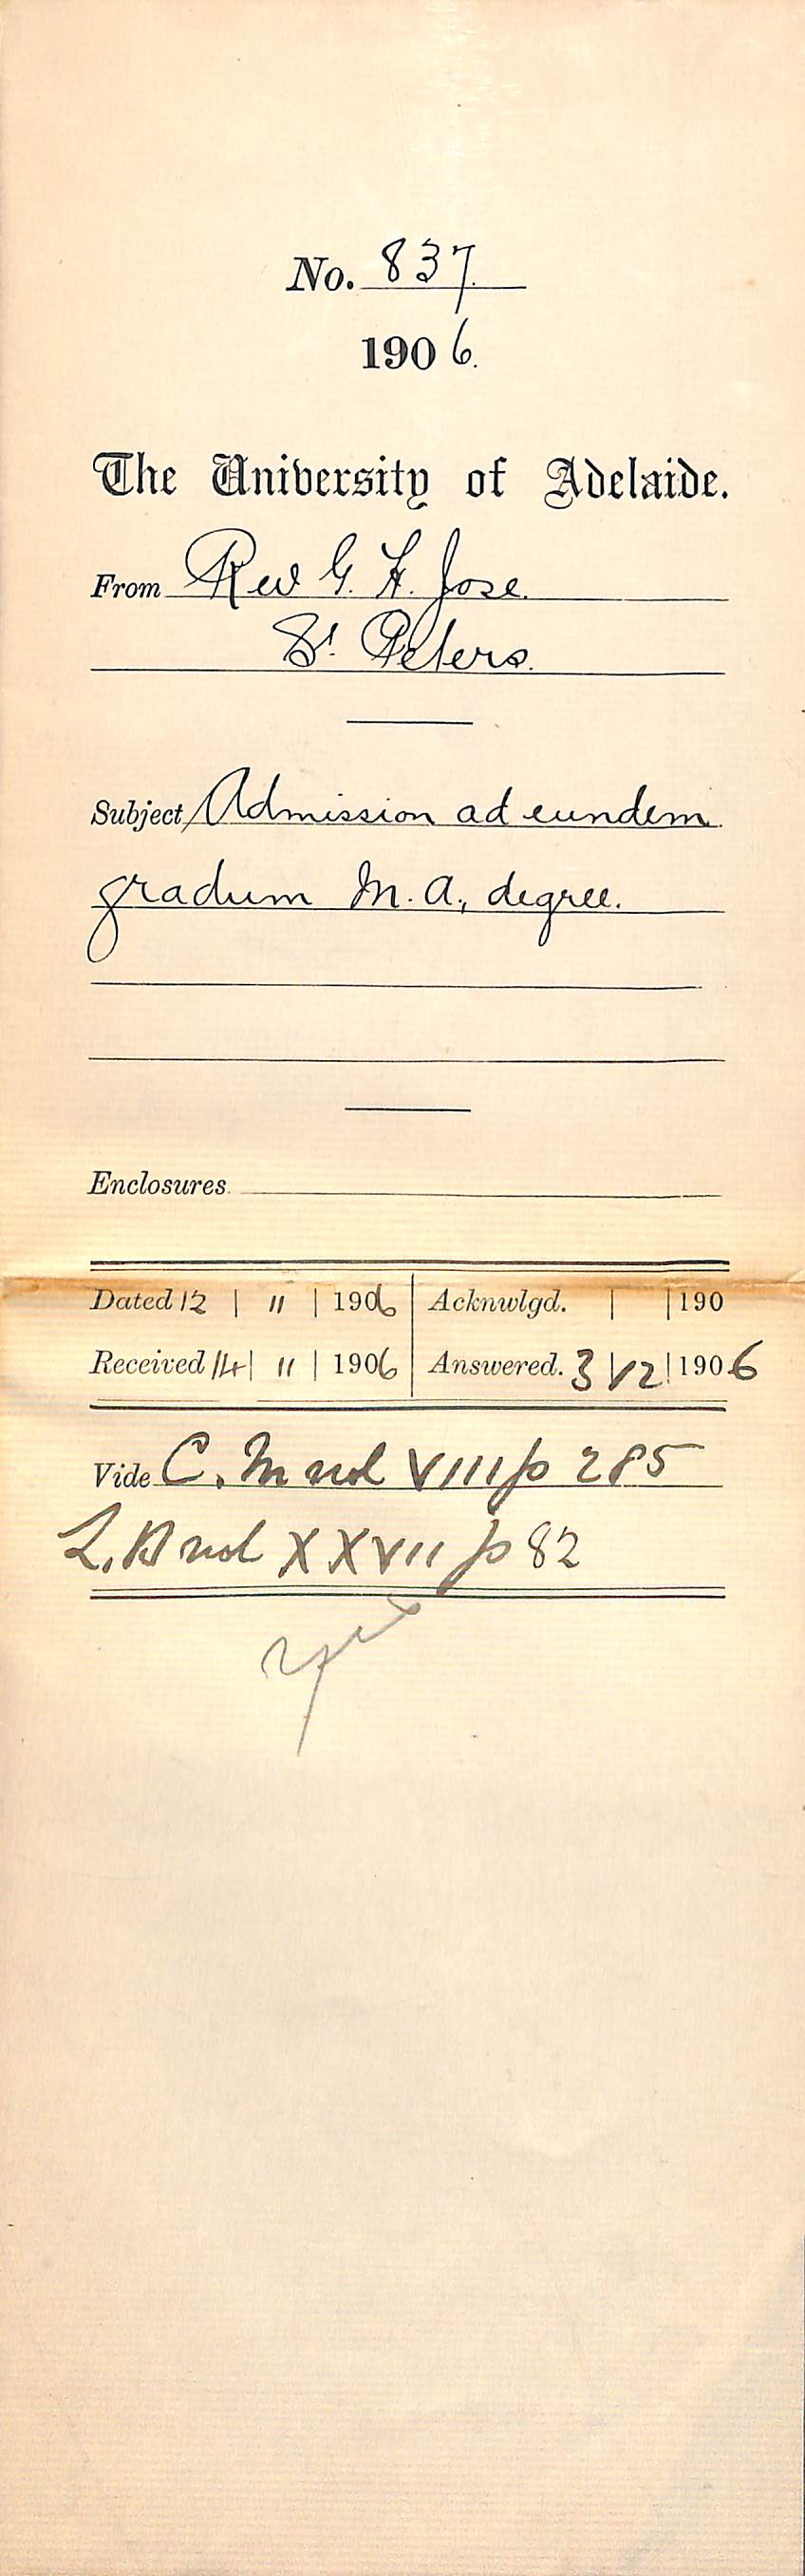 No. 837.
1906.
The University of Adelaide.
From Rev G. H. Jose.
St. Peters.
Subject Admission ad eundem
gradum M.A., degree.
Enclosures
Dated 12 | 11 | 1906 Acknwlgd. | | 190
Received 14 | 11 | 1906 Answered. 3 | 12 | 1906
Vide C. M vol VIII p 285
L. B vol XXVII p 82